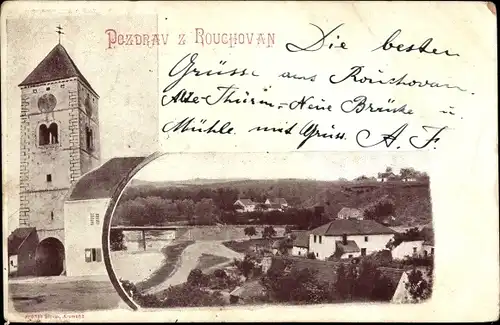 Pozdrav z Rouchovan
Die besten
Grüsse aus Rouchovan.
Alte-Thürm-Neue Brücke u.
Mühle. mit Gruss. A. F.